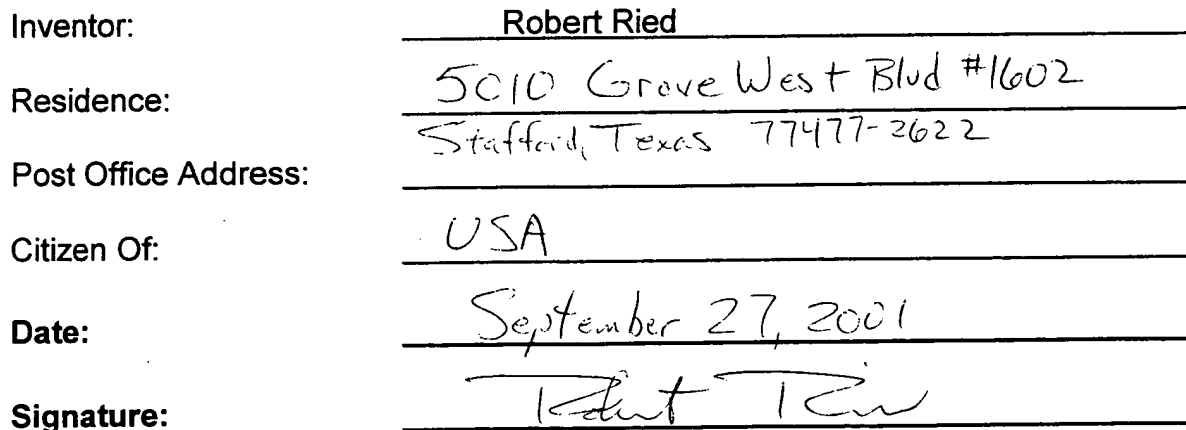 Inventor: Robert Ried
Residence: 5010 Grove West Blvd #1602
Stafford, Texas 77477-2622
Post Office Address:
Citizen Of: USA
Date: September 27, 2001
Signature: Robert Ried